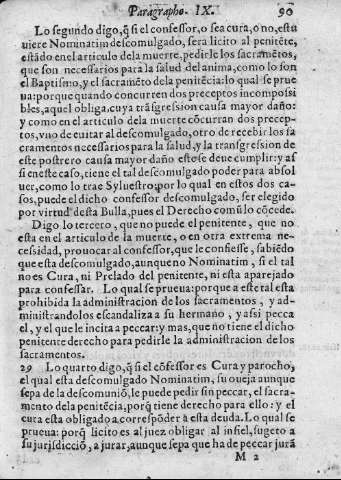 Paragrapho. IX. 90
Lo segundo digo, q̃ si el confessor, o sea cura, o no, estu
uiere Nominatim descomulgado, sera licito al penitẽte,
estãdo en el articulo dela muerte, pedirle los sacramẽtos,
que son necessarios para la salud del anima, como lo son
el Baptismo, y el sacramẽto dela penitẽcia: lo qual se prue
ua: porque quando concurren dos preceptos incompossi
bles, aquel obliga, cuya trãsgression causa mayor daño:
y como en el articulo dela muerte cõcurran dos precep-
tos, vno de euitar al descomulgado, otro de recebir los sa
cramentos necessarios para la salud, y la transgression de
este postrero causa mayor daño este se deue cumplir: y as
si en este caso, tiene el tal descomulgado poder para absol
uer, como lo trae Syluestro, por lo qual en estos dos ca-
sos, puede el dicho confessor descomulgado, ser elegido
por virtud desta Bulla, pues el Derecho comũ lo cõcede.
Digo lo tercero, que no puede el penitente, que no
esta en el articulo de la muerte, o en otra extrema ne-
cessidad, prouocar al confessor, que le confiesse, sabiẽdo
que esta descomulgado, aunque no Nominatim, si el tal
no es Cura, ni Prelado del penitente, ni esta aparejado
para confessar. Lo qual se prueua: porque a este tal esta
prohibida la administracion de los sacramentos, y ad-
ministrandolos escandaliza a su hermano, y assi pecca
el, y el que le incita a peccar: y mas, que no tiene el dicho
penitente derecho para pedirle la administracion de los
sacramentos.
29 Lo quarto digo, q̃ si el cõfessor es Cura y parocho,
el qual esta descomulgado Nominatim, su oueja aunque
sepa de la descomuniõ, le puede pedir sin peccar, el sacra-
mento dela penitẽcia, porq̃ tiene derecho para ello: y el
cura esta obligado a correspõder a esta deuda. Lo qual se
prueua: porq̃ licito es al juez obligar al infiel, sugeto a
su jurisdicciõ, a jurar, aunque sepa que ha de peccar jurã
M 2